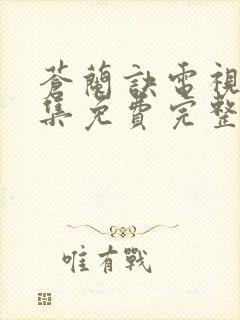 蒼蘭訣電視
集免費完整
唯有戰